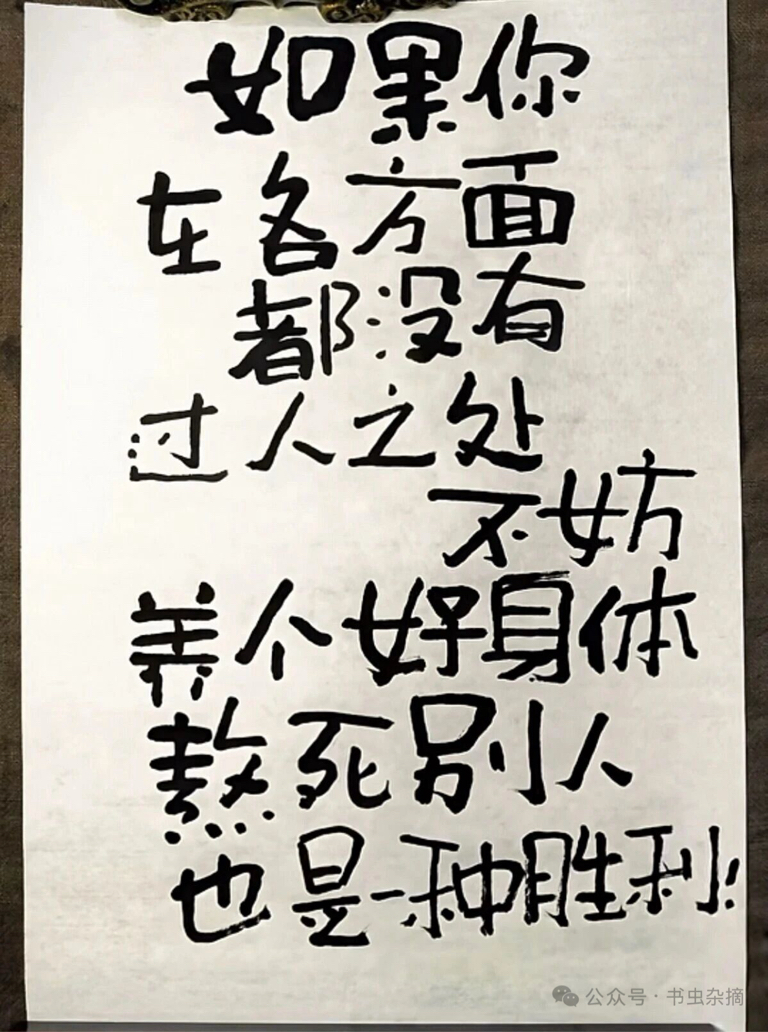 如果你
在各方面
都没有
过人之处
不妨
养个好身体
熬死别人
也是一种胜利!
公众号·书虫杂摘